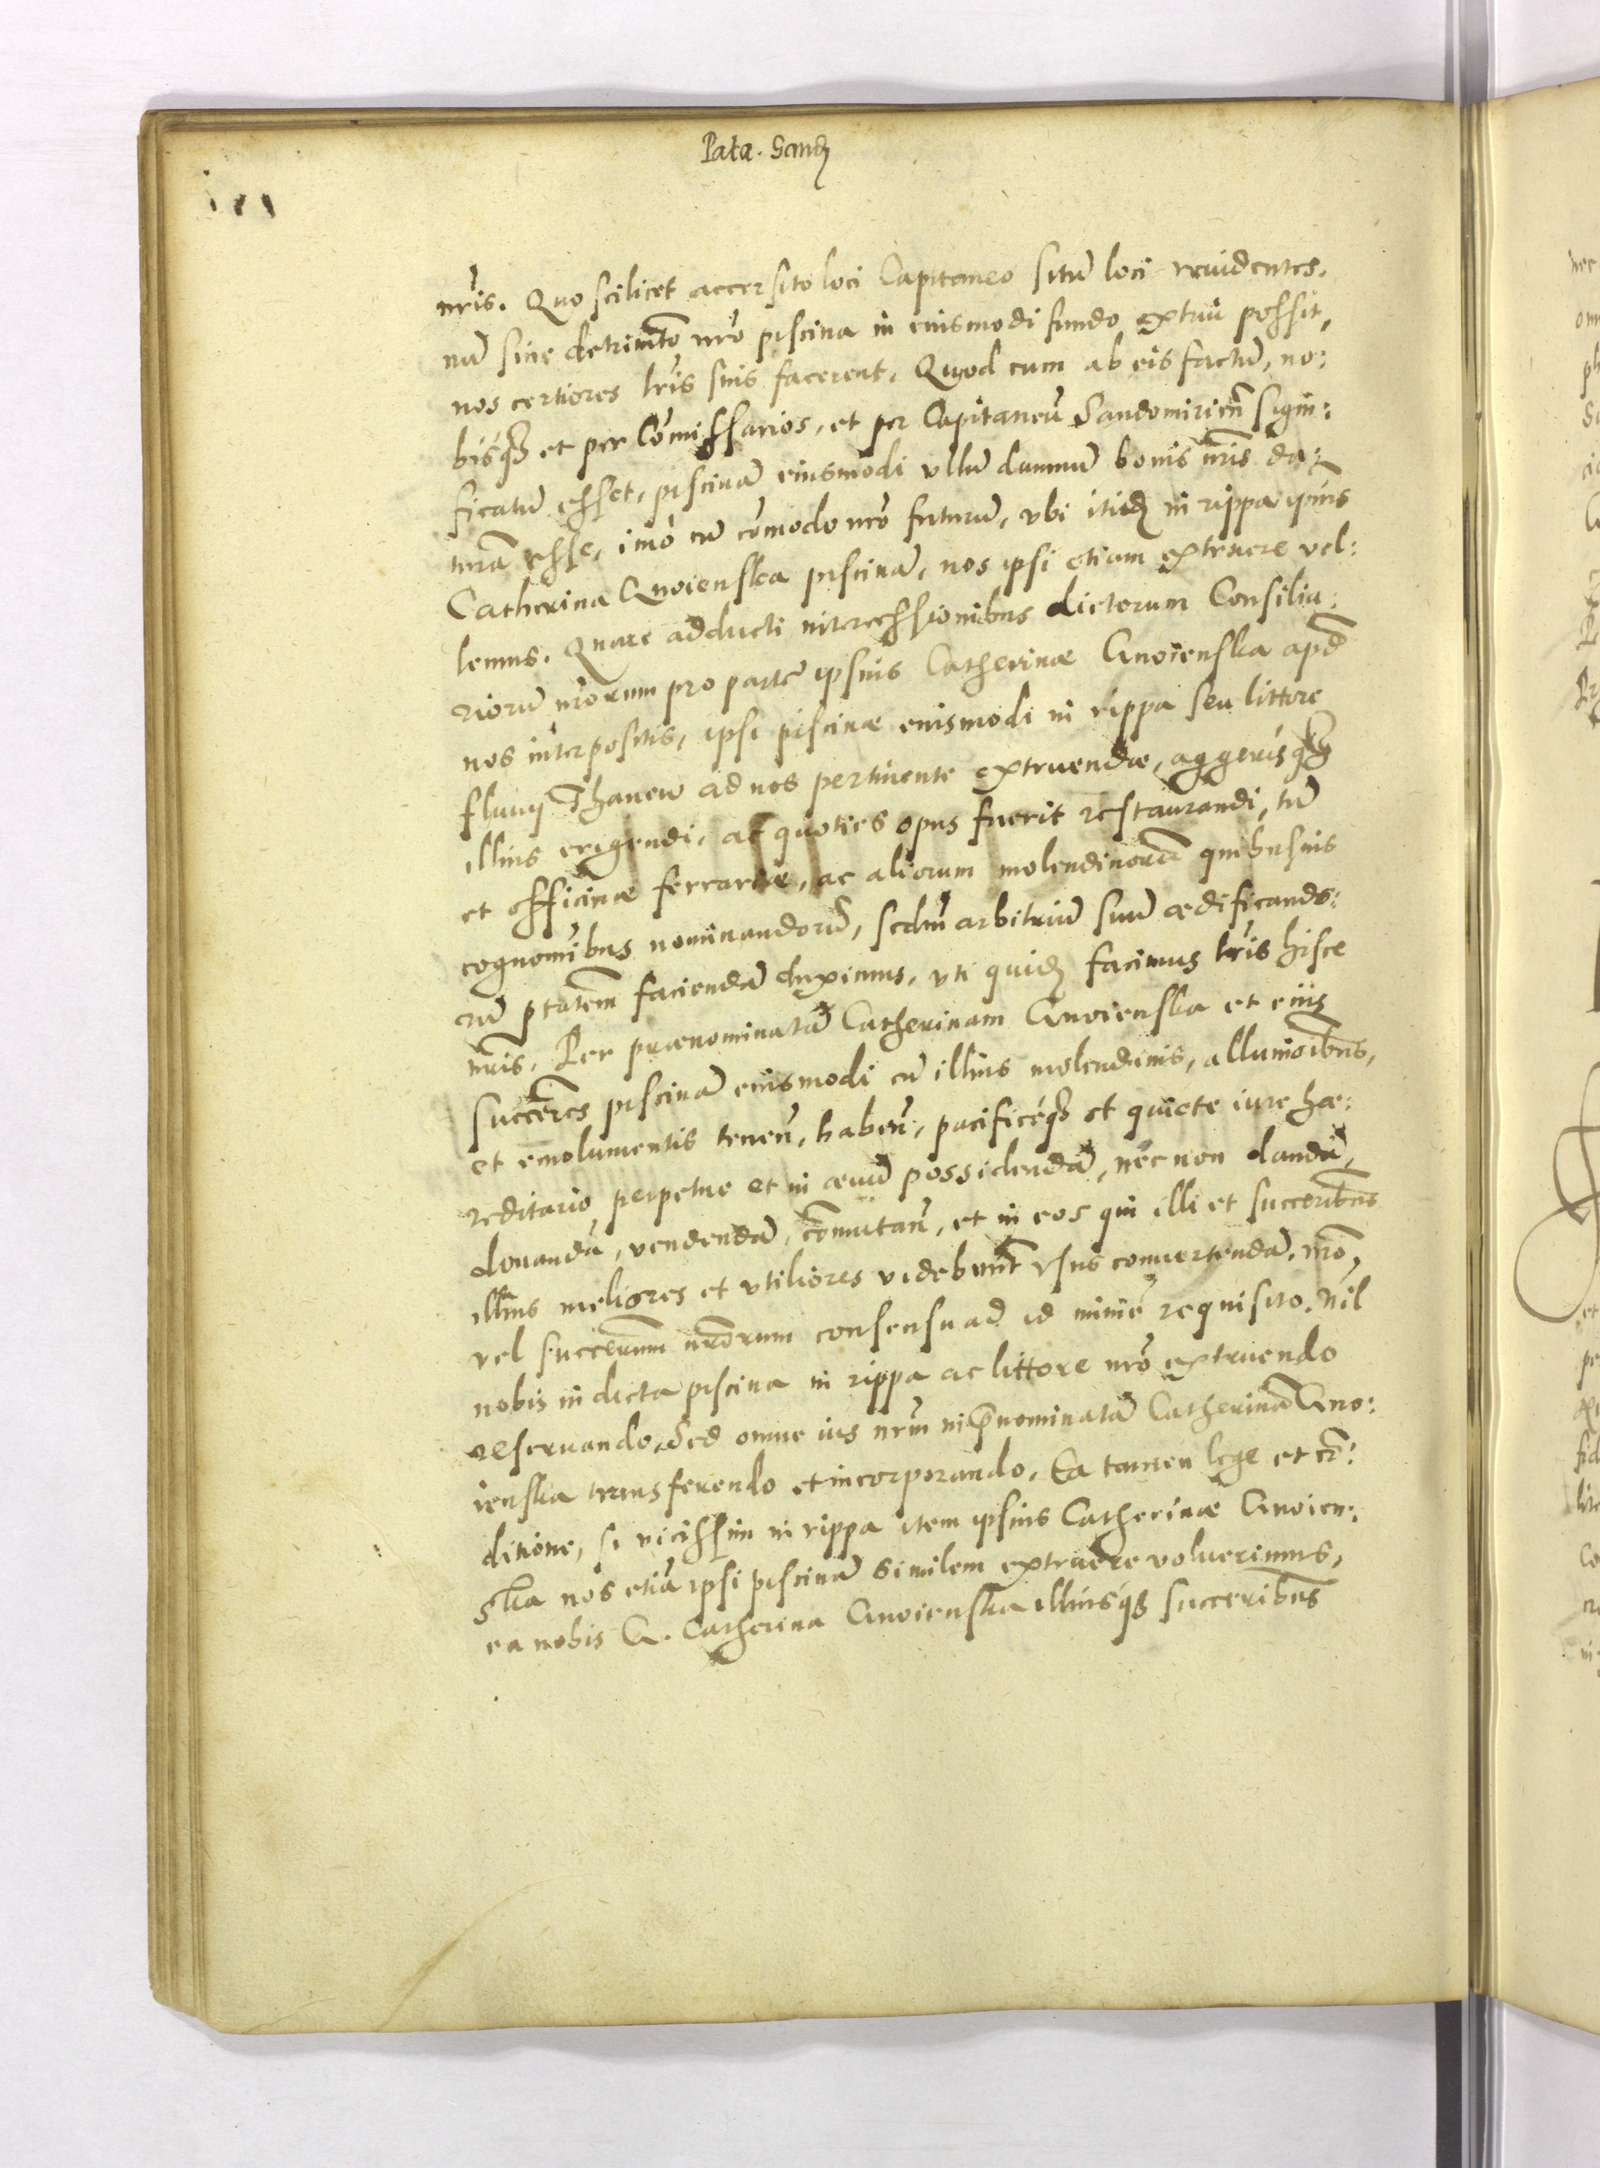 Pata. Sand
nris. Quo scilicet accersito loci Capitaneo situ loci reuidentes,
nū sine detrimto nro piscina in eiusmodi fundo extrui possit,
nos certiores lris suis facerent. Quod cum ab eis factū, no:
bisq et per Cōmissarios, et per Capitaneū Sandomirien signi:
ficatū esset, piscinā eiusmodi vllū damnū bonis nris da:
turā esse, imo cū cōmodo nro futurū, vbi itidē in rippa ipsius
Catherina Gnoienska piscinā, nos ipsi etiam extruere vel:
lemus. Quare adducti intercessionibus dictorum Consilia:
riorū nrorum pro parte ipsius Catherinæ Gnoienska apd
nos interpositis, ipsi piscinæ eiusmodi in rippa seu littore
fluuij Thanew ad nos pertinente extruendæ, aggerisq
illius erigendi, ac quoties opus fuerit restaurandi, tū
et officinæ ferrariæ, ac aliorum molendinorū quibusuis
cognomibus nominandorū, scdm arbitriū suū ædificando:
rū ptatem faciendā duximus, vti quidē facimus lris hisce
nris. Per prænominatā Catherinam Gnoienska et eius
succēres piscinā eiusmodi cū illius molendinis, alluuioibus,
et emolumentis tenen, haben, pacificeq et quiete iure hæ:
reditario perpetue et in æuū possidendā, nec non dandā,
donandā, vendendā, cōmutan, et in eos qui illi et succēribus
illius meliores et vtiliores videbunt vsus conuertendā, nro,
vel succērum nrorum consensu ad id minie requisito. Nil
nobis in dicta piscina in rippa ac littore nro extruendo
reseruando. Sed omne ius nrm in pnominatā Catherinā Gno:
ienska transferendo et incorporando. Ea tamen lege et cō:
ditione, si vicissim in rippa item ipsius Catherinæ Gnoien:
ska nos etiā ipsi piscinā similem extruere voluerimus,
ea nobis G. Catherina Gnoienska illiusq succeribus